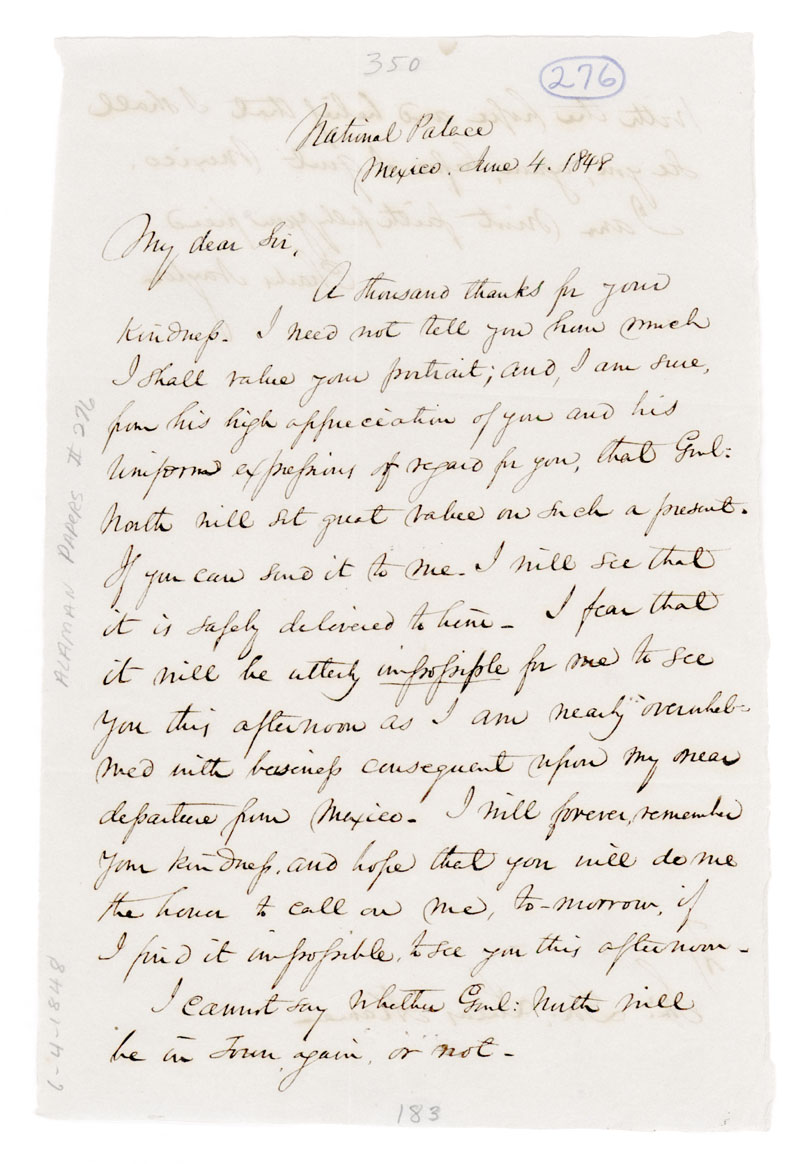 350
276
National Palace
Mexico. June 4. 1848
My dear Sir,
A thousand thanks for your
kindness. I need not tell you how much
I shall value your portrait; and, I am sure,
from his high appreciation of you and his
uniform expressions of regard for you, that Genl:
North will set great value on such a present.
If you can send it to me. I will see that
it is safely delivered to him - I fear that
it will be utterly impossible for me to see
you this afternoon as I am nearly overwhel-
med with business consequent upon my near
departure from Mexico. I will forever, remember
your kindness, and hope that you will do me
the honor to call on me, to-morrow, if
I find it impossible, to see you this afternoon -
I cannot say whether Genl: North will
be in Town, again, or not -
183
ALAMAN PAPERS # 276
6-4-1848